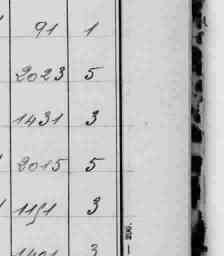 91 1
2023 5
1431 3
2015 5
1191 3
3
— 200.